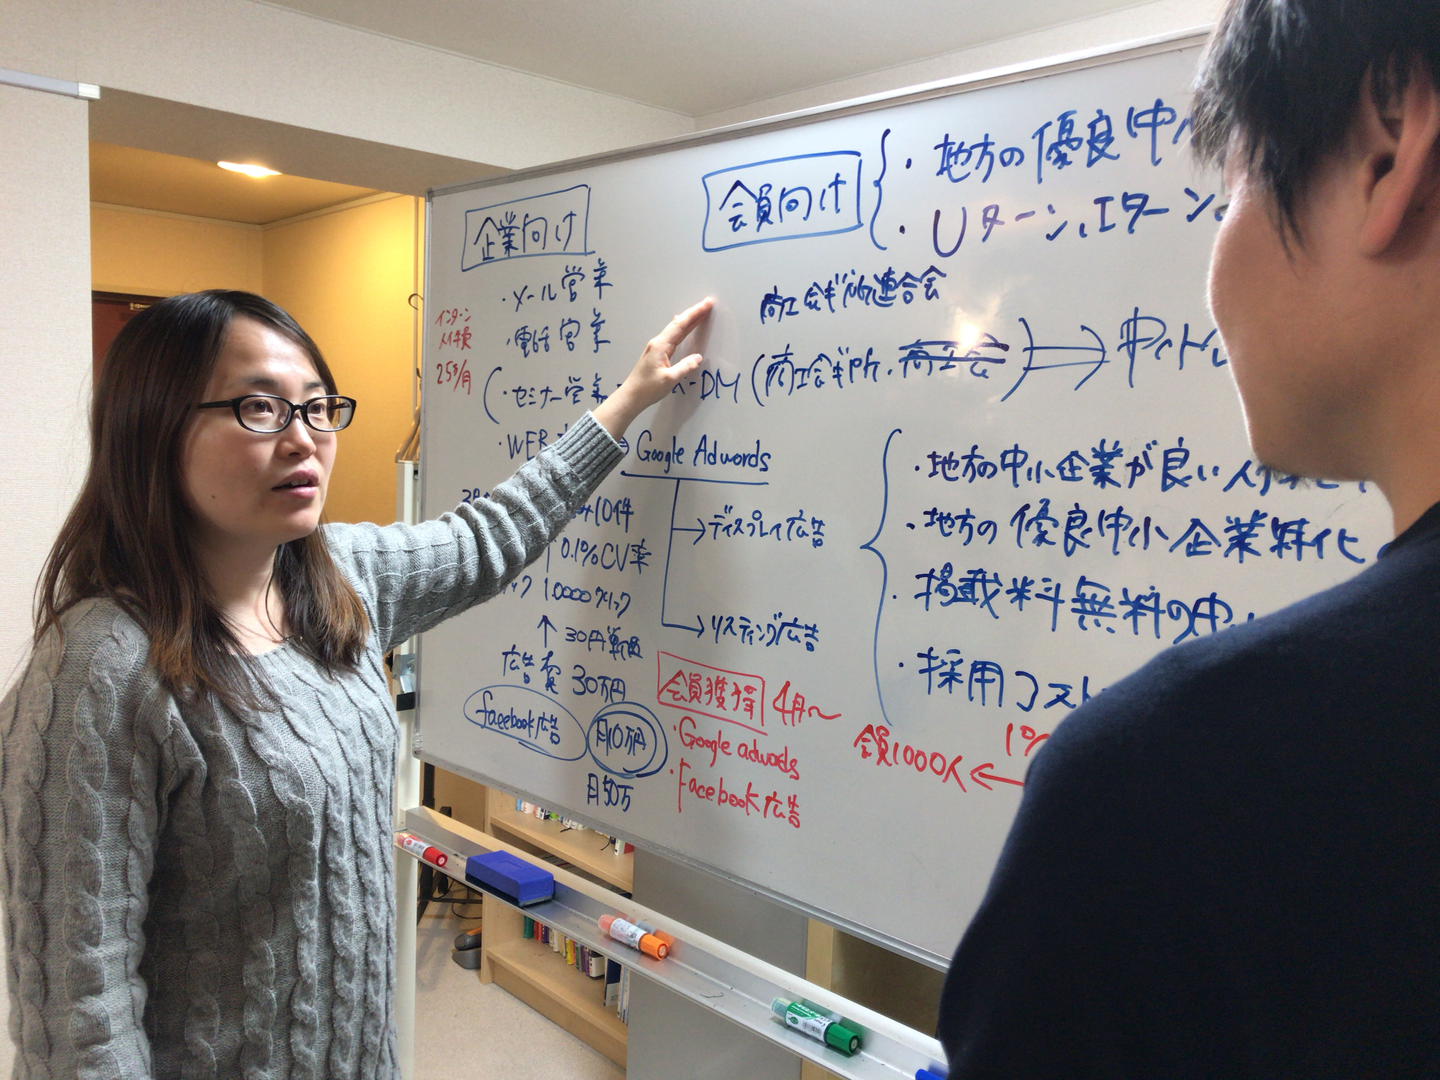 企業向け
・メール営業
・電話営業
・セミナー営業
・WEB
インターン
25万/月
10件
0.1%CV率
10000クリック
30円単価
広告費 30万円
facebook広告
月10万円
月50万
会員向け
・地方の優良中小
・Uターン、Iターン
商工会ぎ所連合会
X-DM (商工会ぎ所、商工会)
Google Adwords
ディスプレイ広告
リスティング広告
・地方の中小企業が良い人
・地方の優良中小企業特化
・掲載料無料の中
・採用コスト
会員獲得 4月〜
・Google adwords
・Facebook広告
会員1000人 ←